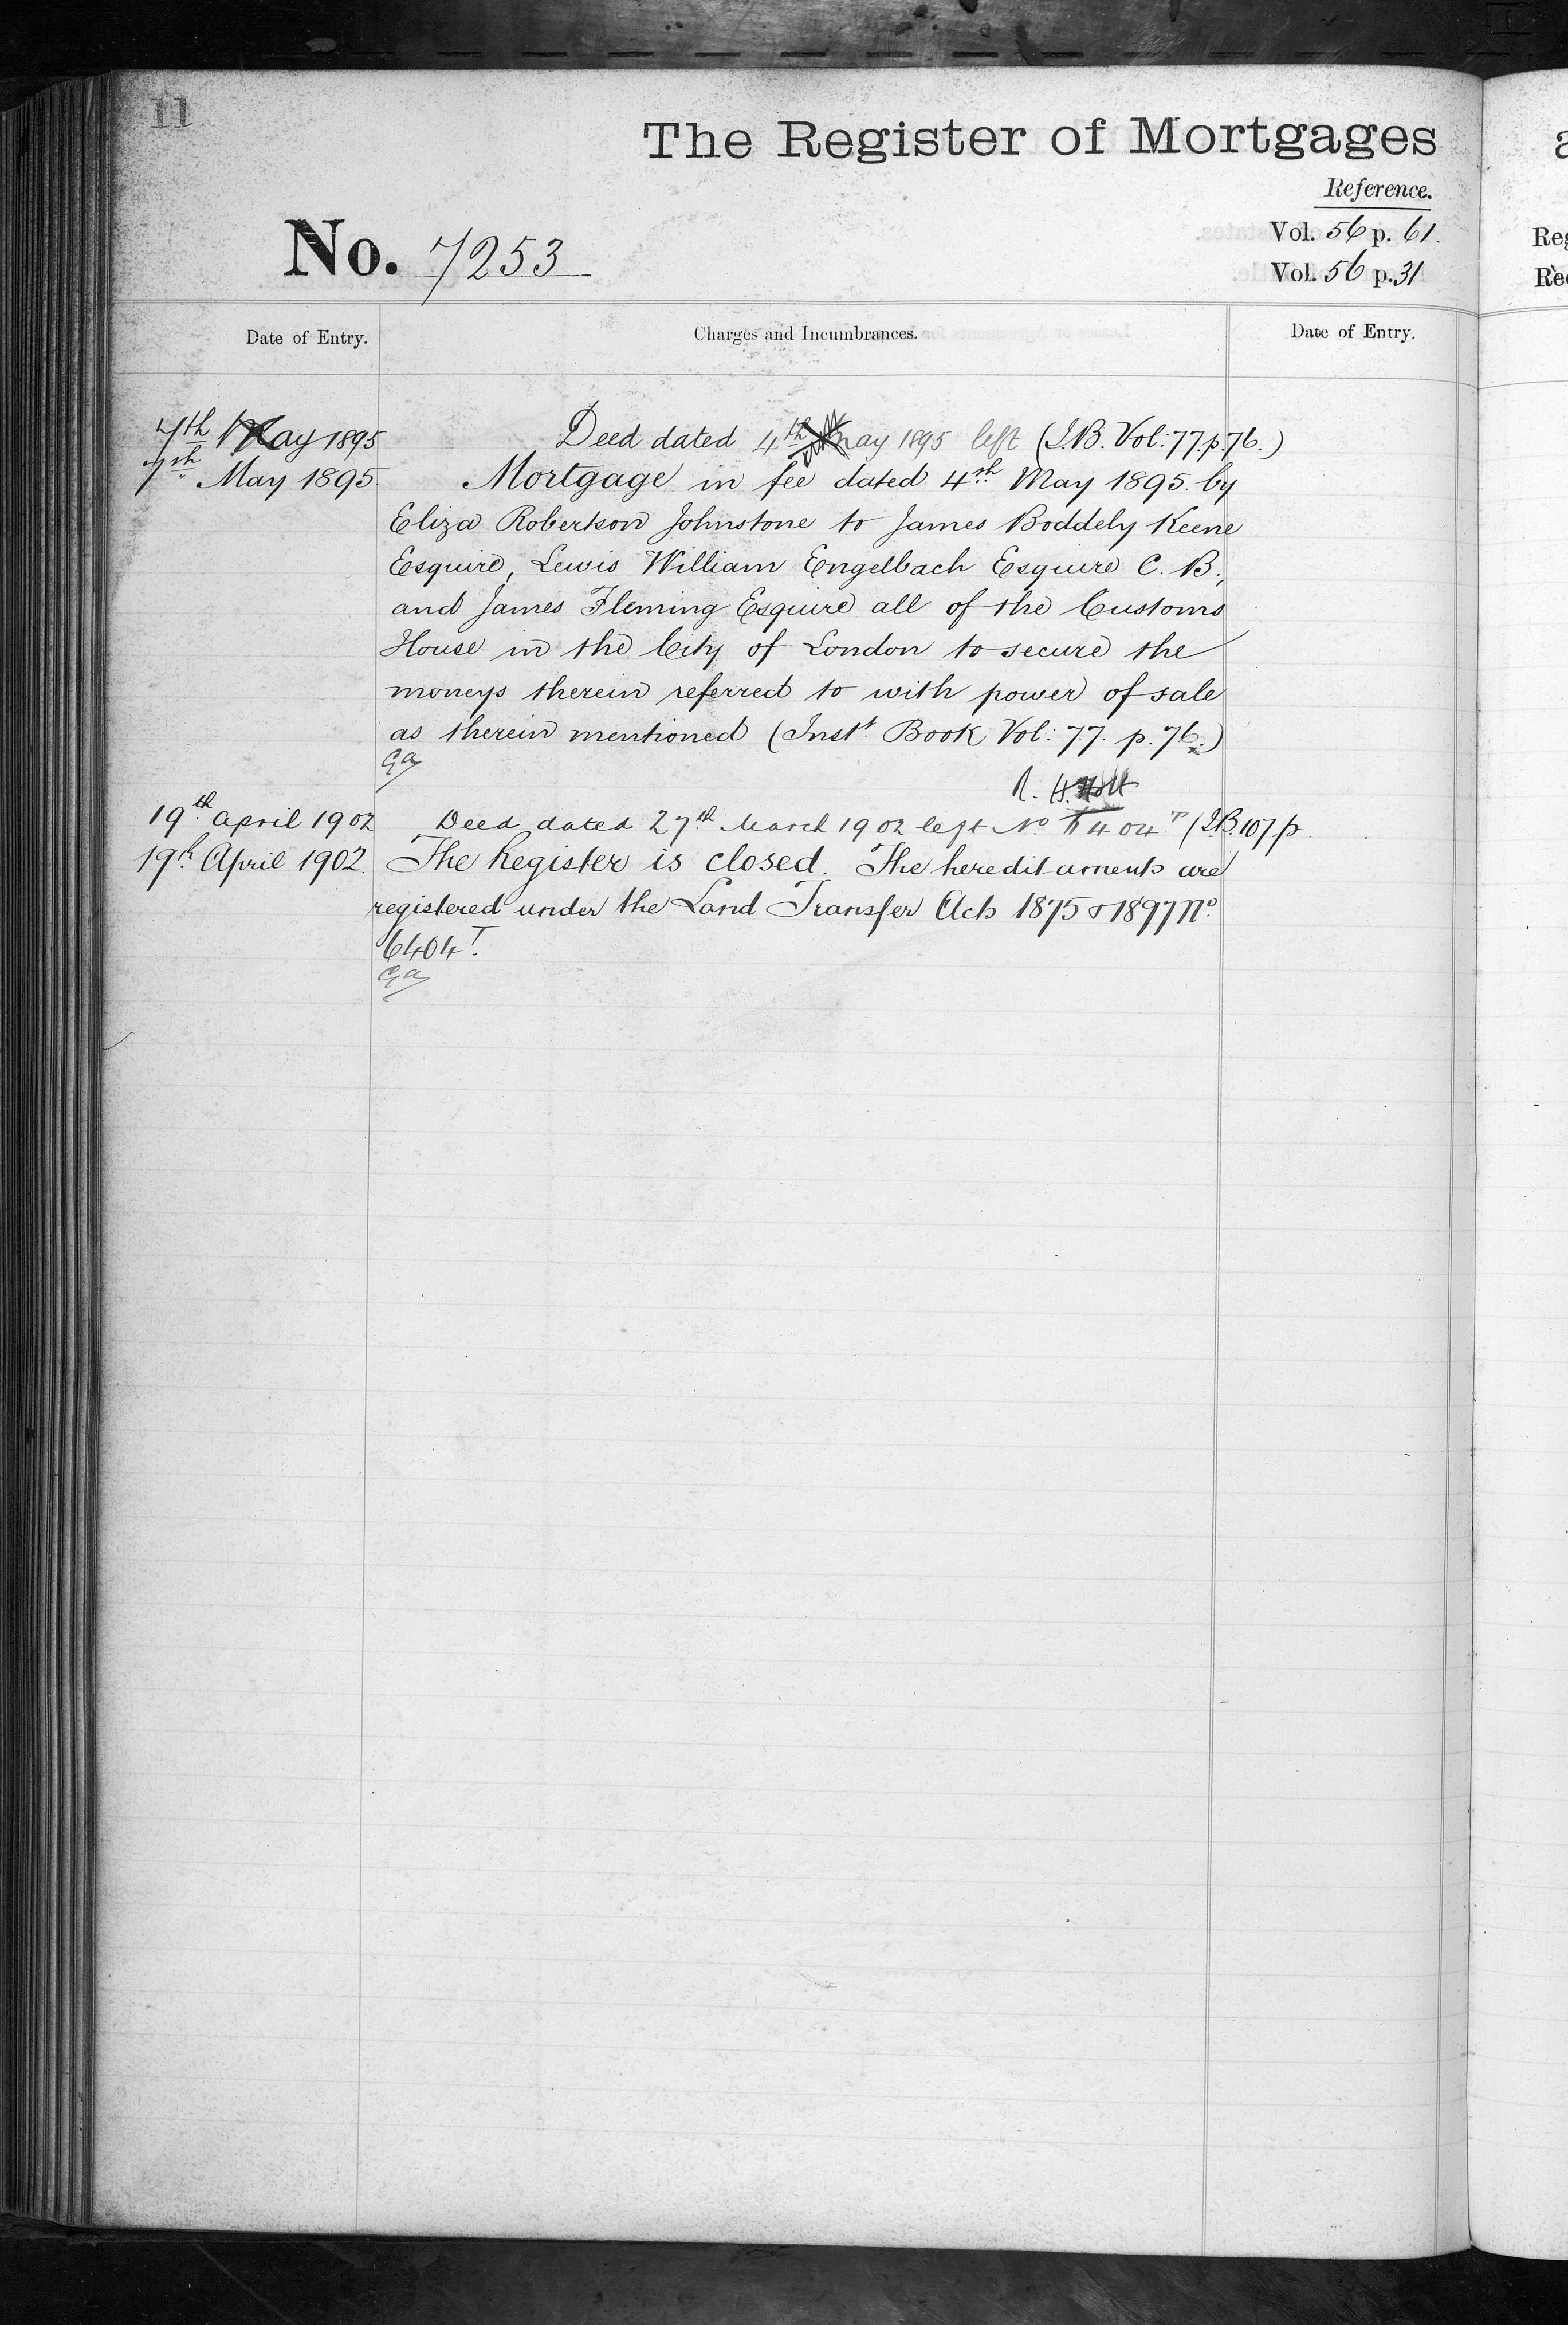 11
The Register of Mortgages
Reference.
No. 7253
Vol. 56 p. 61.
Vol. 56 p. 31
Date of Entry.
Charges and Incumbrances.
Date of Entry.
7th May 1895 Deed dated 4th May 1895 left (I.B. Vol: 77. p. 76.)
7th May 1895 Mortgage in fee dated 4th May 1895. by
Eliza Robertson Johnstone to James Boddely Keene
Esquire, Lewis William Engelbach Esquire C. B.,
and James Fleming Esquire all of the Customs
House in the City of London to secure the
moneys therein referred to with power of sale
as therein mentioned (Inst. Book Vol: 77. p. 76.)
R. H. Holt
19th April 1902 Deed dated 27th March 1902 left No 6404T (I.B. 107 p
19th April 1902. The Register is closed. The hereditaments are
registered under the Land Transfer Acts 1875 & 1897 No.
6404T.